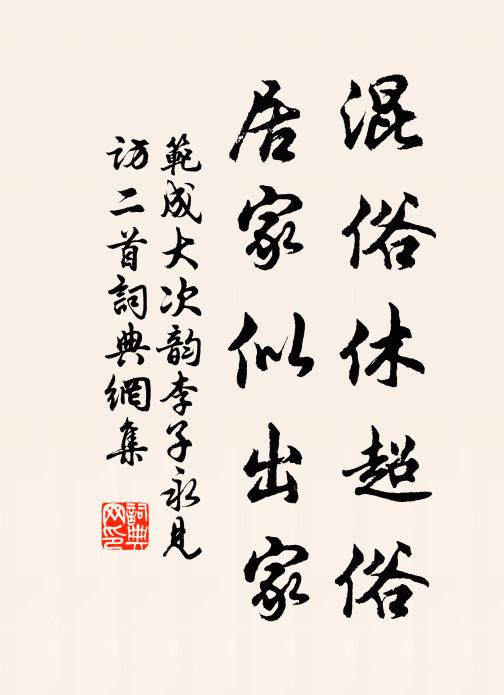 混俗休超俗
居家似出家
範成大次韵李子永見
訪二首詞典網集
詞典网印